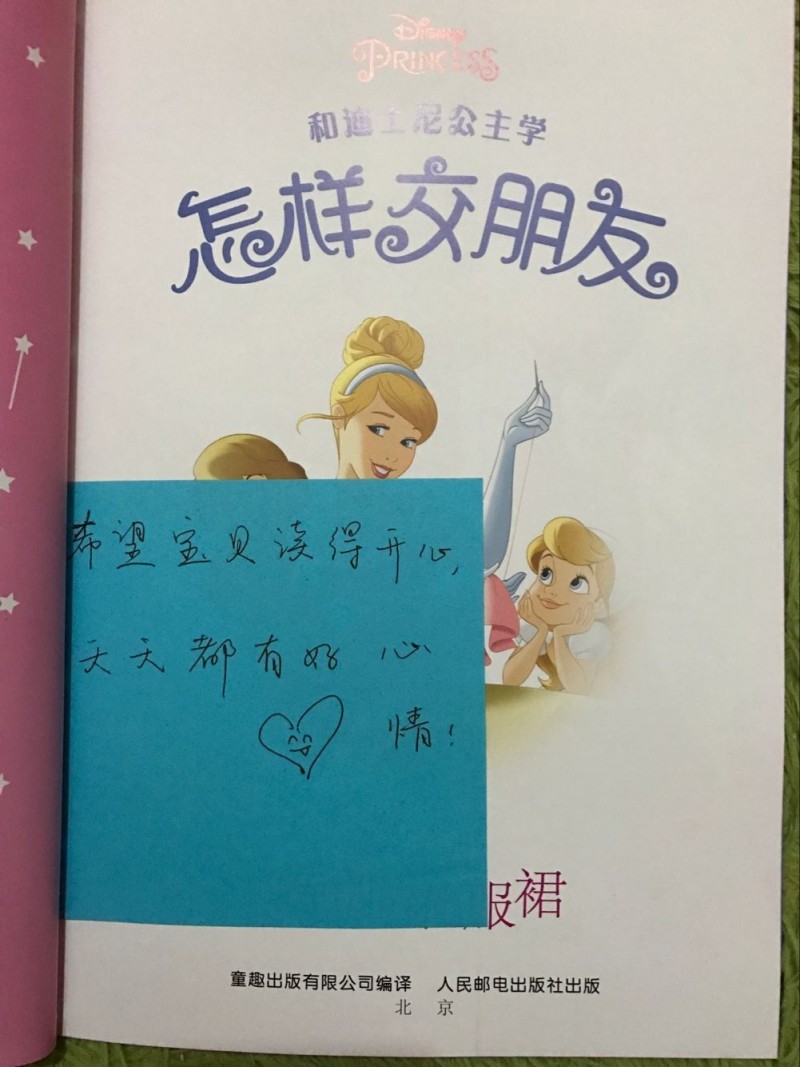 Disney
PRINCESS
和迪士尼公主学
怎样交朋友
希望宝贝读得开心,
天天都有好心
情!
服裙
童趣出版有限公司编译 人民邮电出版社出版
北 京